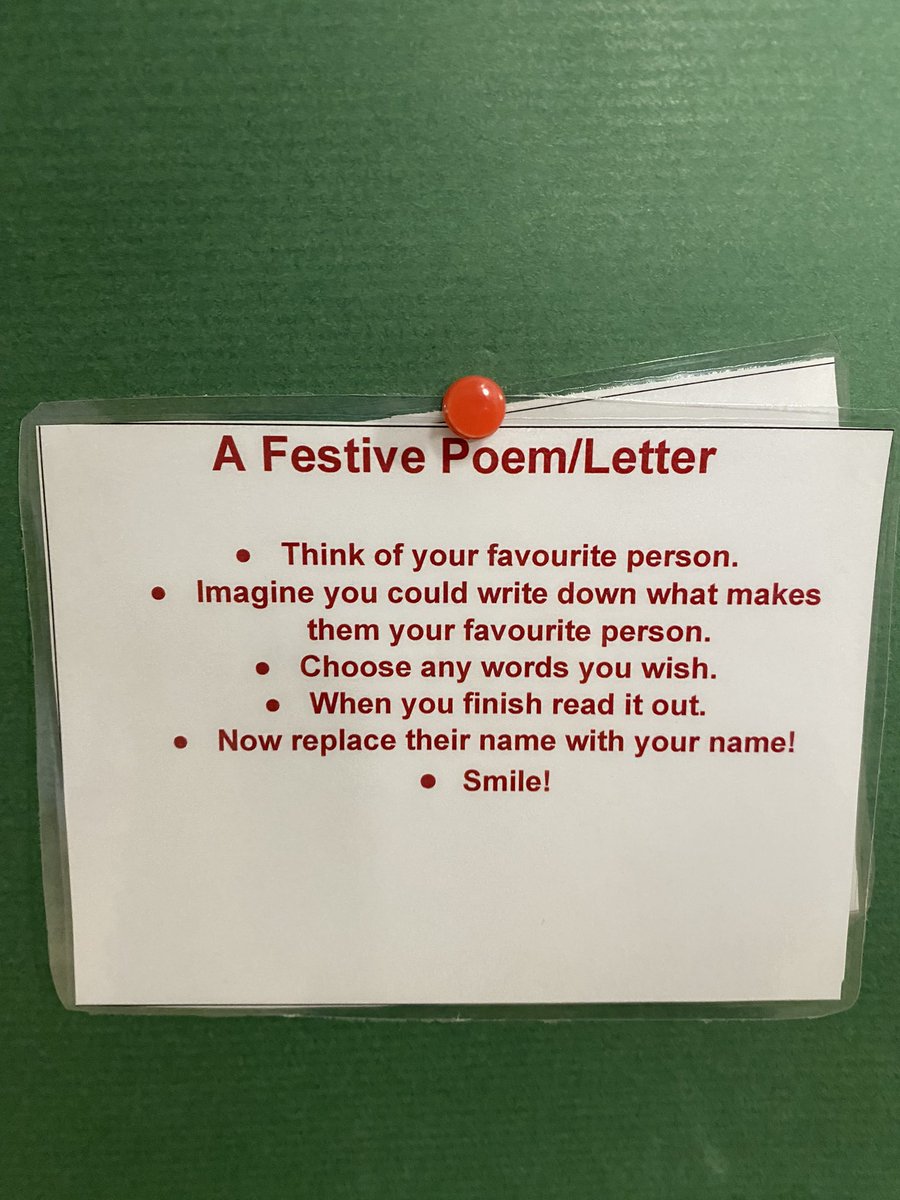 A Festive Poem/Letter
● Think of your favourite person.
● Imagine you could write down what makes
them your favourite person.
● Choose any words you wish.
● When you finish read it out.
● Now replace their name with your name!
● Smile!